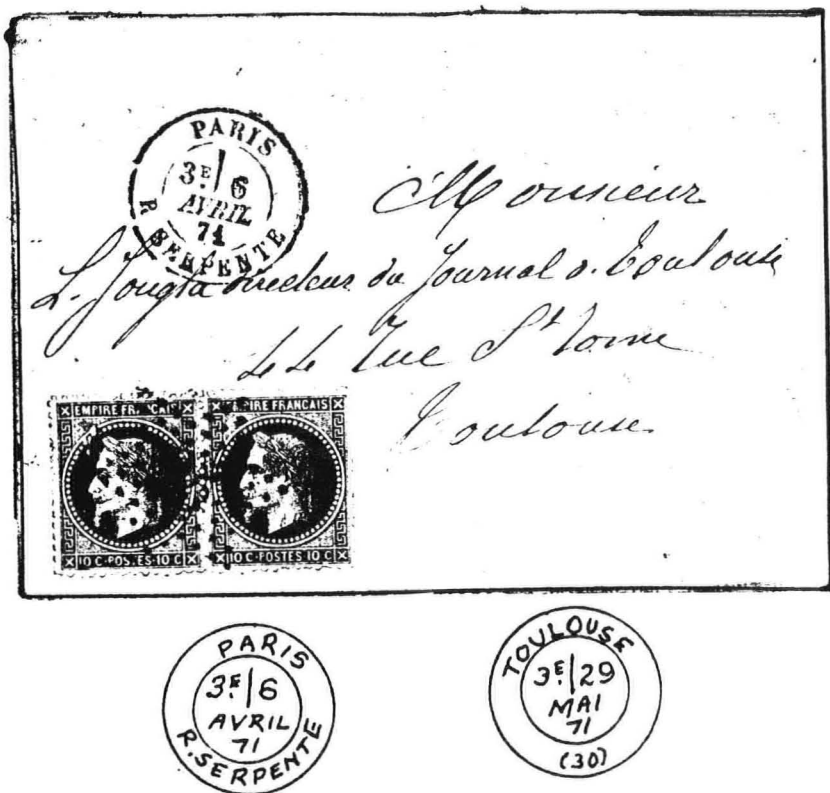 PARIS
3E 6
AVRIL
71
R. SERPENTE
Monsieur
L. Jougla directeur du Journal d. Toulouse
44 rue St Rome
Toulouse
EMPIRE FRANCAIS
10 C·POSTES·10 C
EMPIRE FRANCAIS
10 C·POSTES·10 C
PARIS
3E. 6
AVRIL
71
R. SERPENTE
TOULOUSE
3E. 29
MAI
71
(30)